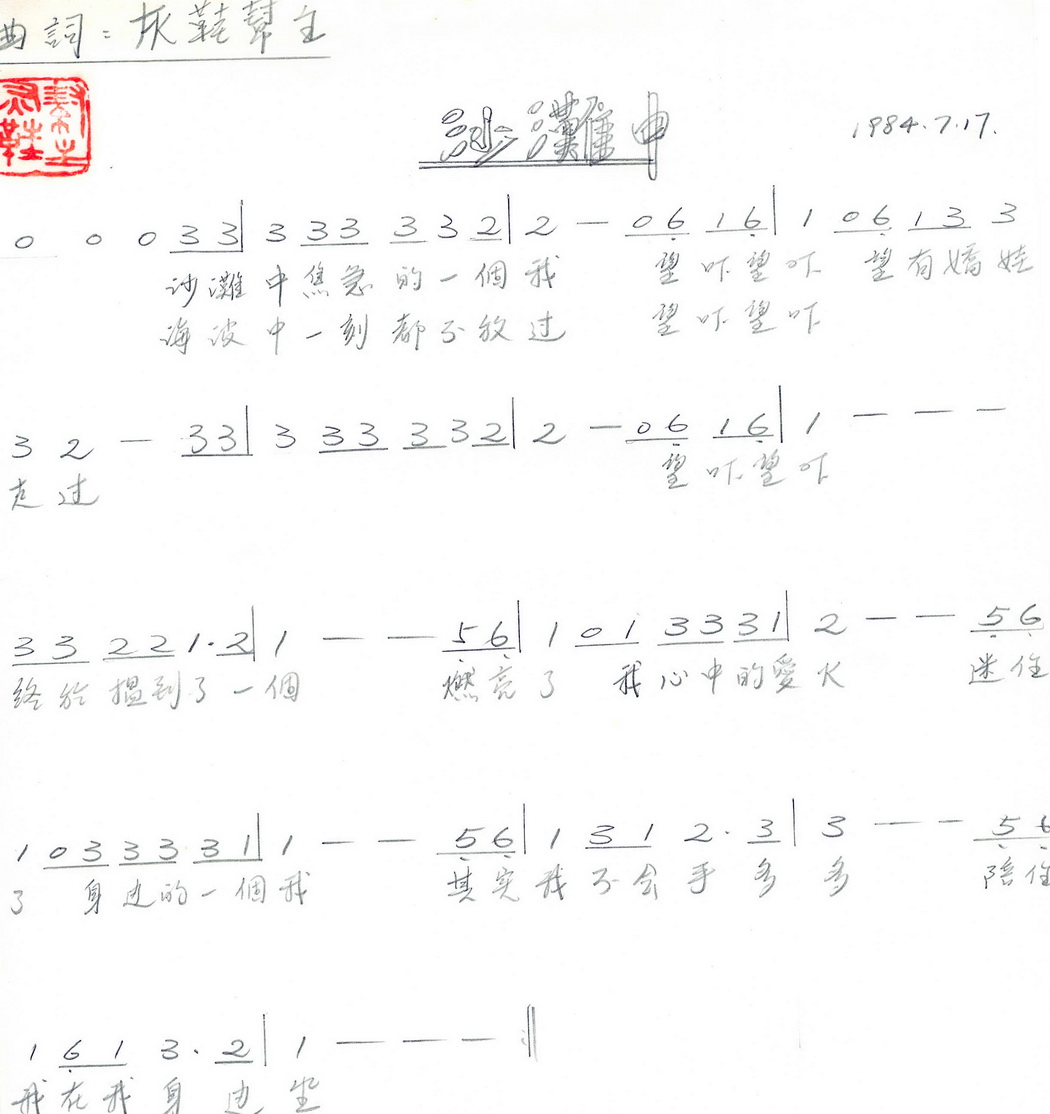 曲詞：灰鞋幫主
沙灘中
1984.7.17.
0 0 0 33 | 3 33 3 3 2 | 2 — 06 16 | 1 06 13 3
沙灘中焦急的一個我 望吓望吓 望有嬌娃
海波中一刻都不放过 望吓望吓
3 2 — 33 | 3 33 332 | 2 — 06 16 | 1 — — —
走过 望吓望吓
33 22 1·2 | 1 — — 56 | 1 01 3331 | 2 — — 56
終於搵到了一個 燃亮了 我心中的愛火 迷住
1 03 33 31 | 1 — — 56 | 1 31 2·3 | 3 — — 56
了 身边的一個我 其实我不会手多多 陪住
1 61 3·2 | 1 — — — ‖
我在我身边坐